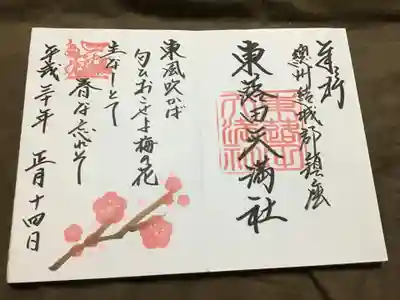 奉拝
總州結城郡鎮座
東蕗田天満社
東風吹かば
匂ひおこせよ梅の花
主なしとて
春な忘れそ
平成三十年 正月十四日